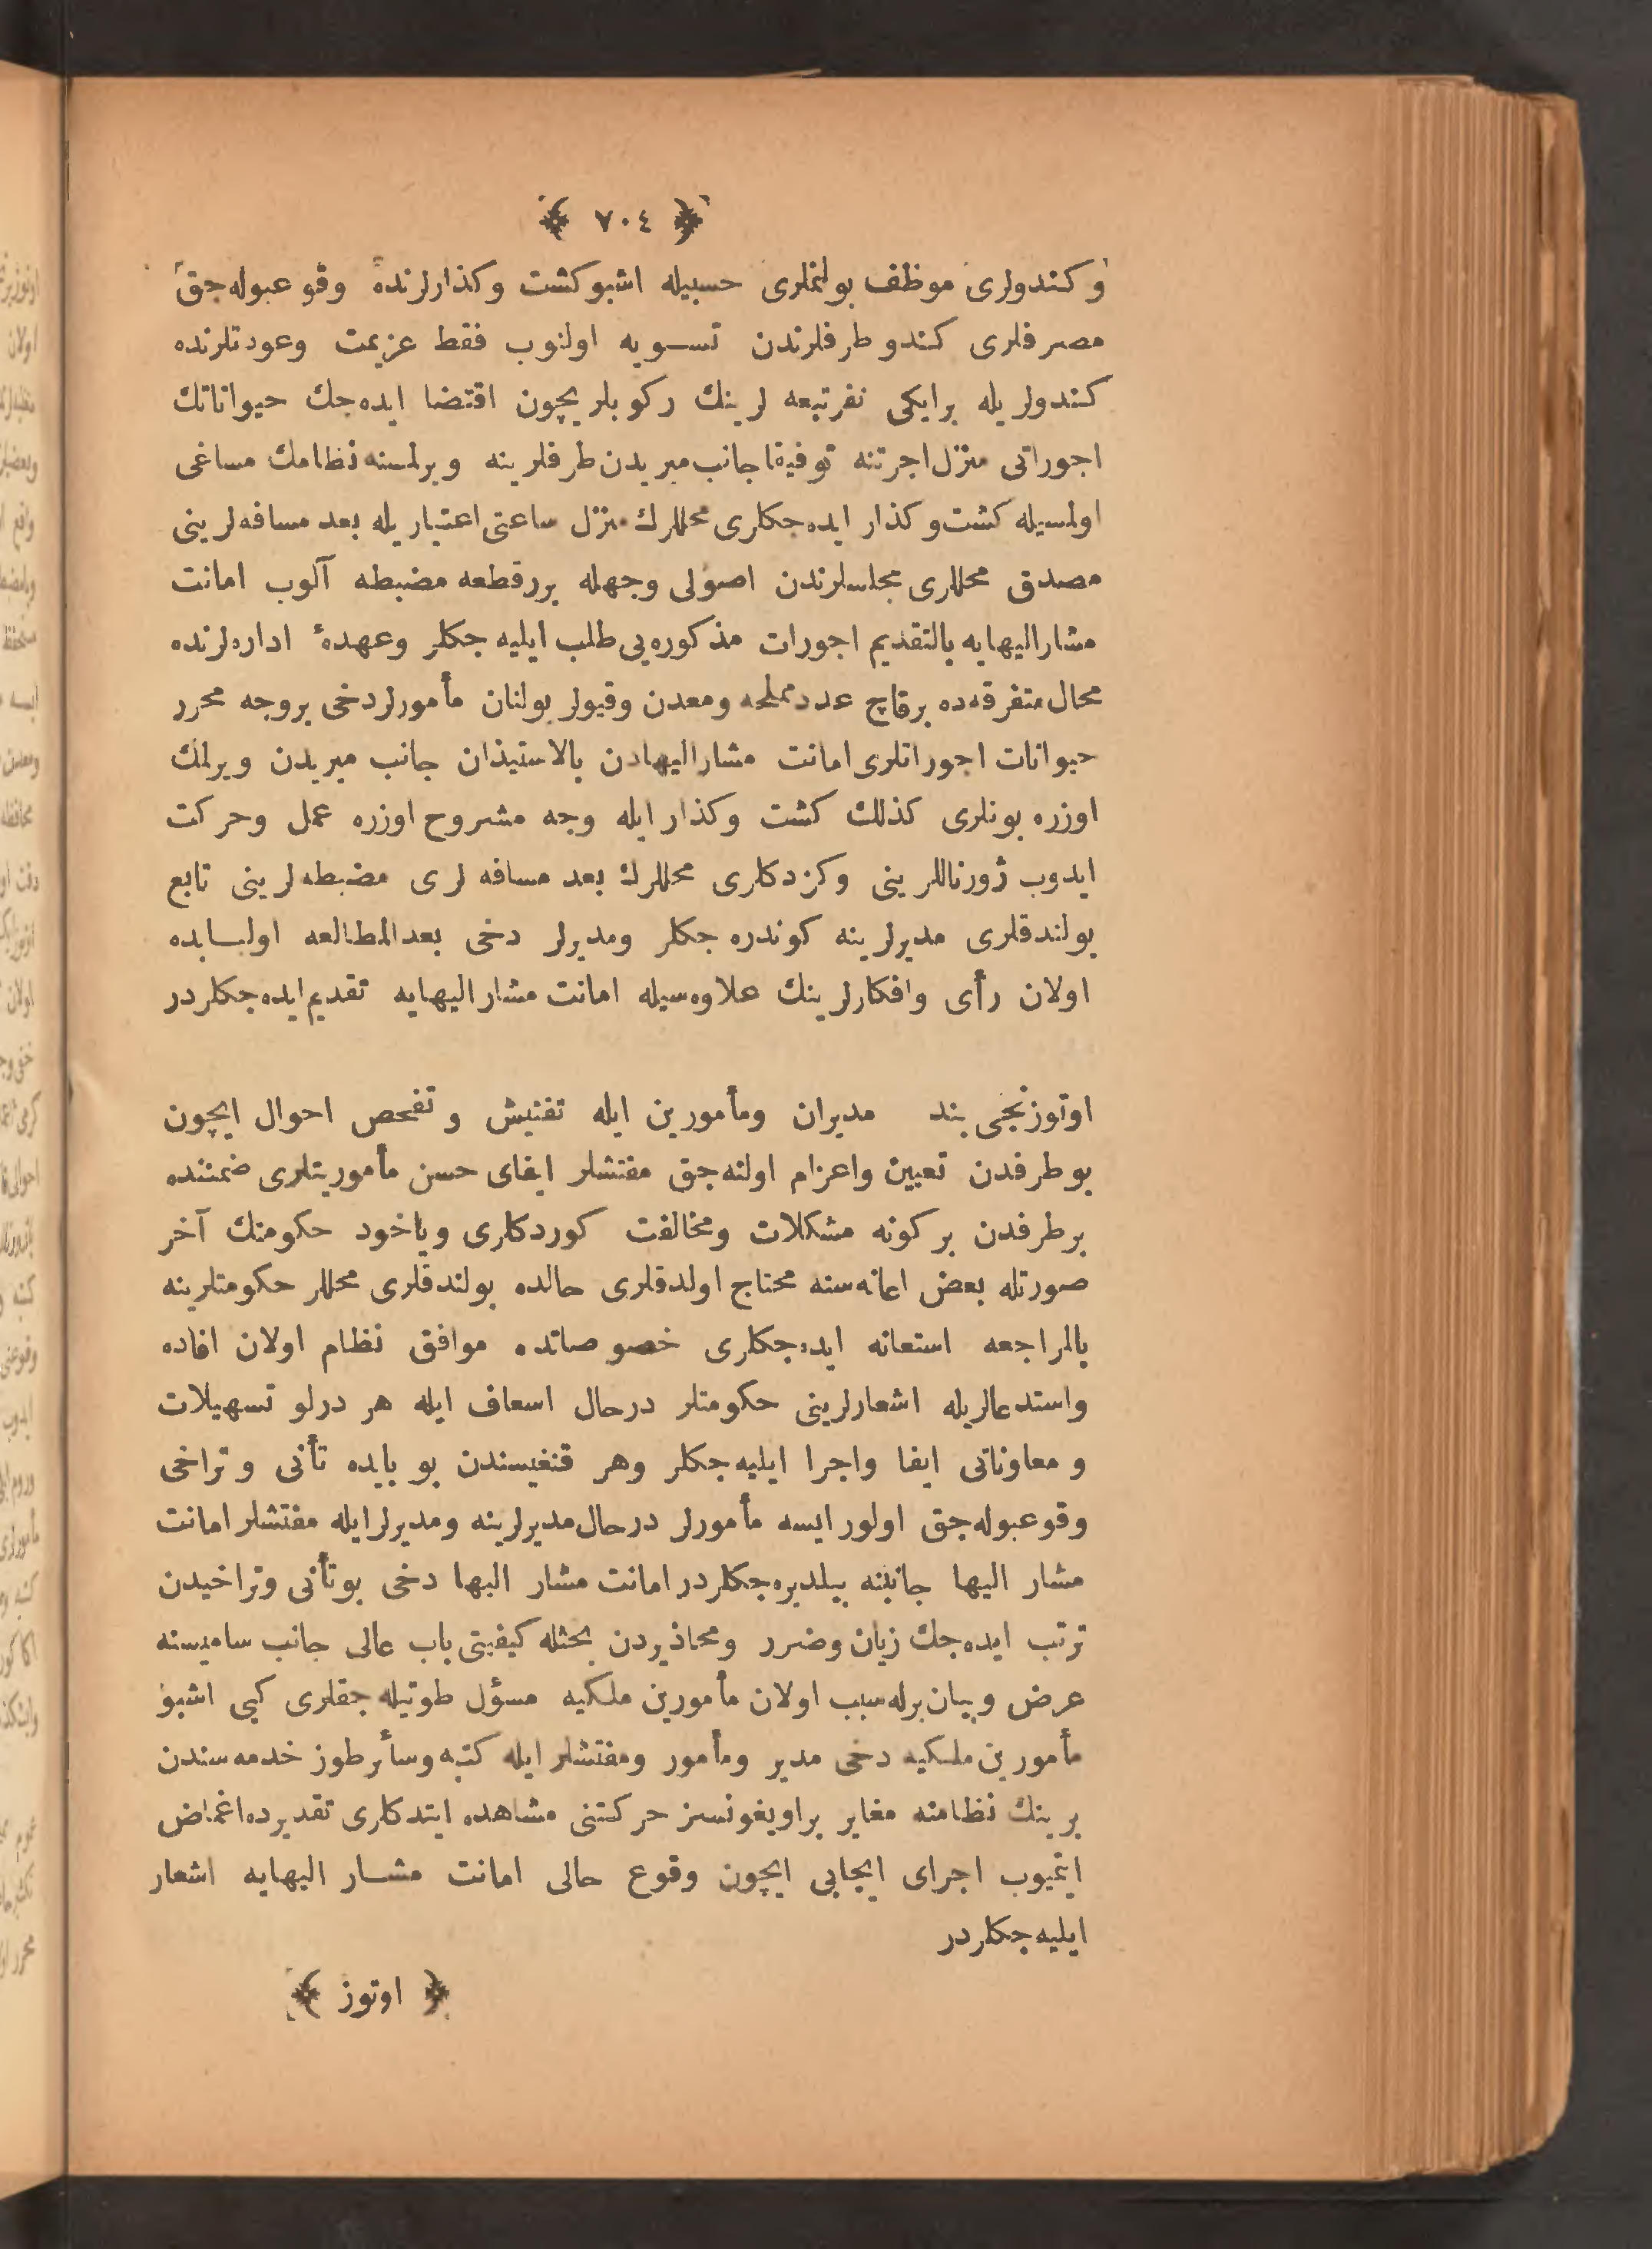 ﴿ ٧٠٤ ﴾
وكندولری موظف بولنملری حسبیله اشبو كشت وكذارلرنده وقوعبوله‌جق
مصرفلری كندو طرفلرندن تسویه اولنوب فقط عزیمت وعودتلرنده
كندولریله برایكی نفر تبعه لرینك ركوبلریچون اقتضا ایده‌جك حیواناتك
اجوراتی منزل اجرتنه توفیقا جانب میریدن طرفلرینه ویرلمسنه نظامك مساغی
اولمسیله كشت وكذار ایده‌جكلری محللرك منزل ساعتی اعتباریله بعد مسافه‌لرینی
مصدق محللری مجلسلرندن اصولی وجهله برر قطعه مضبطه آلوب امانت
مشارالیهایه بالتقدیم اجورات مذكوره‌یی طلب ایلیه جكلر وعهدهٔ اداره‌لرنده
محال متفرقه‌ده برقاچ عدد مملحه ومعدن وقیولر بولنان مأمورلر دخی بروجه محرر
حیوانات اجوراتلری امانت مشارالیهادن بالاستیذان جانب میریدن ویرلمك
اوزره بونلری كذلك كشت وكذار ایله وجه مشروح اوزره عمل وحركت
ایدوب ژورناللرینی وكزدكلری محللرك بعد مسافه لری مضبطه‌لرینی تابع
بولندقلری مدیرلرینه كوندره جكلر ومدیرلر دخی بعدالمطالعه اولبابده
اولان رأی وافكارلرینك علاوه‌سیله امانت مشارالیهایه تقدیم ایده‌جكلردر
اوتوزنجی بند مدیران ومأمورین ایله تفتیش وتفحص احوال ایچون
بوطرفدن تعیین واعزام اولنه‌جق مفتشلر ایفای حسن مأموریتلری ضمننده
برطرفدن بركونه مشكلات ومخالفت كوردكلری ویاخود حكومتك آخر
صورتله بعض اعانه‌سنه محتاج اولدقلری حالده بولندقلری محللر حكومتلرینه
بالمراجعه استعانه ایده‌جكلری خصوصاتده موافق نظام اولان افاده
واستدعالریله اشعارلرینی حكومتلر درحال اسعاف ایله هر درلو تسهیلات
ومعاوناتی ایفا واجرا ایلیه‌جكلر وهر قنغیسندن بو بابده تأنی وتراخی
وقوعبوله‌جق اولور ایسه مأمورلر درحال مدیرلرینه ومدیرلر ایله مفتشلر امانت
مشار الیها جانبنه بیلدیره‌جكلردر امانت مشار الیها دخی بوتأنی وتراخیدن
ترتب ایده‌جك زیان وضرر ومحاذیردن بحثله كیفیتی باب عالی جانب سامیسنه
عرض وبیان برله سبب اولان مأمورین ملكیه مسؤل طوتیله‌جقلری كبی اشبو
مأمورین ملكیه دخی مدیر ومأمور ومفتشلر ایله كتبه وسائر طوز خدمه‌سندن
برینك نظامنه مغایر براویغونسز حركتنی مشاهده ایتدكلری تقدیرده اغماض
ایتمیوب اجرای ایجابی ایچون وقوع حالی امانت مشار الیهایه اشعار
ایلیه‌جكلردر
﴿ اوتوز ﴾